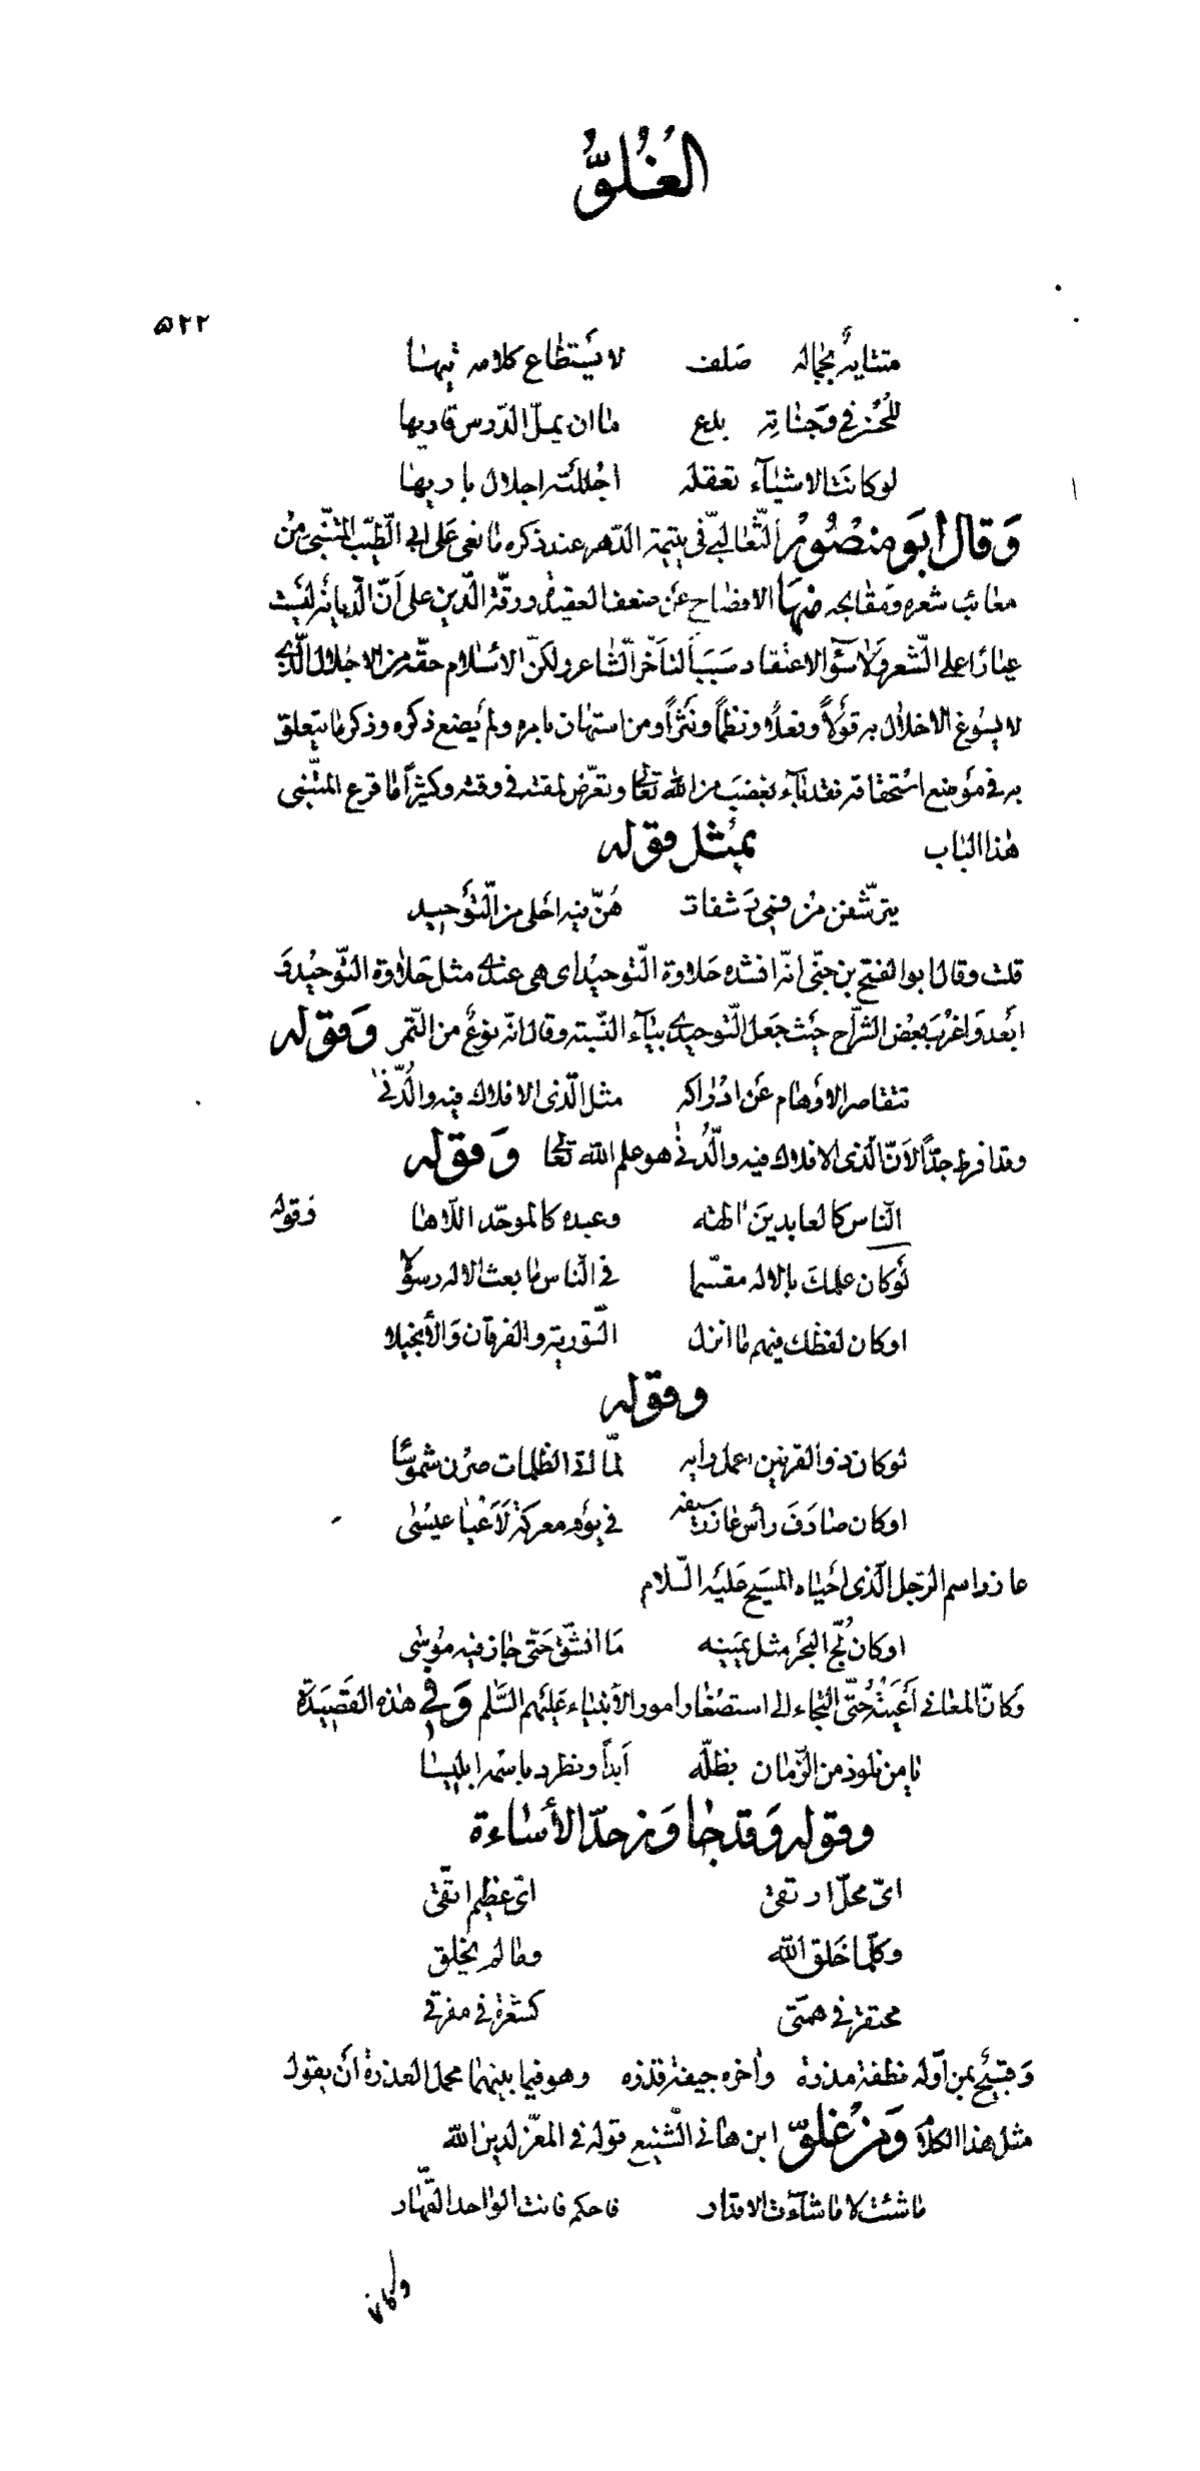 الغُلُوُّ
٥٢٢
متتايهٌ بجماله صَلف لا يُستطاع كلامه تيها
للحُسن في وَجناتِه بدع ما ان يملّ الدّرس قاريها
لو كانت الاشياء تعقله اجللته اجلال باريها
وَقالَ ابَو منصُور الثّعالبيّ في يتيمة الدّهر عند ذكره ما نعى عَلى ابي الطّيّب المتنّبي من
معائب شعره ومقابحه منها الافصاح عن ضعف العقيدة ورقّة الدّين على اَنّ الدّيانة ليسَت
عيارًا على الشّعر وَلا سوٓء الاعتقاد سَبَباً لتاخّر الشّاعر ولكنّ الاسلام حقّه من الاجلال الّذي
لا يسُوغ الاخلال به قوَلاً وفعلاً ونظماً ونثراً ومن استهان بامره ولم يضع ذكره وذكر ما يتعلق
به في موَضع استحقاقه فقد بآء بغضبَ من الله تعالى وتعّرض لمقته في وقته وكثيراً ما قرع المتنّبى
هٰذا الباب بمثل قوله
يترشّفن من فمي رَشفات هُنّ فيه احلى من التّوَحيد
قلت وقال ابو الفتح بن جنّى انّه انشده حَلاوة التّوحيد اى هى عندى مثل حَلاوة التّوحيد وَ
ابَعد وَاغربَ بَعض الشرّاح حيَث جَعل التّوحيدى بيآء النّسبة وقال انّه نوعٌ من التّمر وَقوله
تتقاصر الاوَهام عَن ادراكه مثل الّذى الافلاك فيه والدُّنٰى
وقد افرط جدّاً لاَنّ الّذى الافلاك فيه والدُّنٰى هو علم الله تعالى وَقوله
النّاس كالعابدينَ الهة وعبده كالموحّد اللّاها وَقوله
لَو كان علمكَ بالاله مقسّما في النّاس ما بعث الاله رسولا
او كان لفظك فيهم ما انزل التّورية والفرقان وَالأنجيلا
وقوله
لو كان ذو القرنين اعمل رايه لمّا اتى الظلمات صرن شموسًا
او كان صادَفَ رأس عازر سيفه في يوَم معركة لَاَعيا عيسٰى
عازر اسم الرّجل الّذى احَياه المسَيح عَليَه السّلام
او كان لُجّ البحَر مثل يمَينه مَا انشقّ حَتّى جاز فيه موُسٰى
وَكانّ المعاني اَعَيتهُ حُتّى التجاء الى استصغار امور الأنبياء عَليَهم السَّلم وَفي هذه القَصيَدة
يا من نلوذ من الزّمان بظلّه اَبداً ونطرد باسمه ابليسا
وقوله وَقد جاوَز حدّ الأساءة
اىّ محلّ ارتقى اىّ عظيم اتّقى
وكلّما خَلق الله وما لم يخلق
محتقر في همّتى كشعرة في مفرقي
وَقبيَح بمن اَوّله نطفة مذرة واٰخره جيفة قذره وهو فيما بينهما محمل العذرة اَن يقول
مثل هذا الكلام وَمن غلوّ ابن هانى الشّنيع قوله في المعزّ لدين الله
ما شئت لا ما شاءَت الاقدار فاحكم فانت الواحد القهّار
وكان